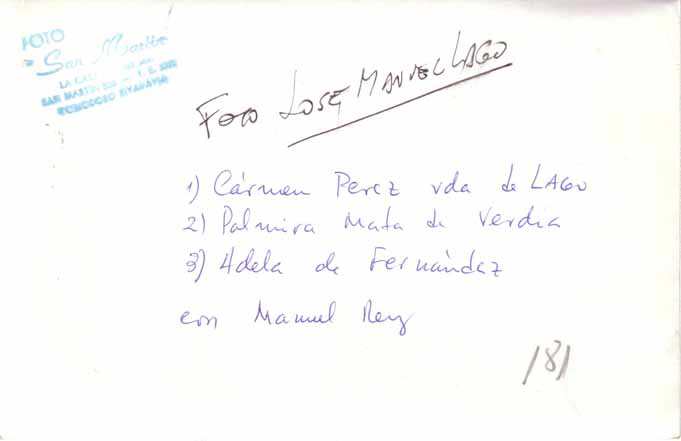 FOTO
San Martin
SAN MARTIN
COMODORO RIVADAVIA
Foto JOSÉ MANUEL LAGO
1) Cármen Perez vda de LAGO
2) Palmira Mata de Verdia
3) Adela de Fernández
con Manuel Rey
181